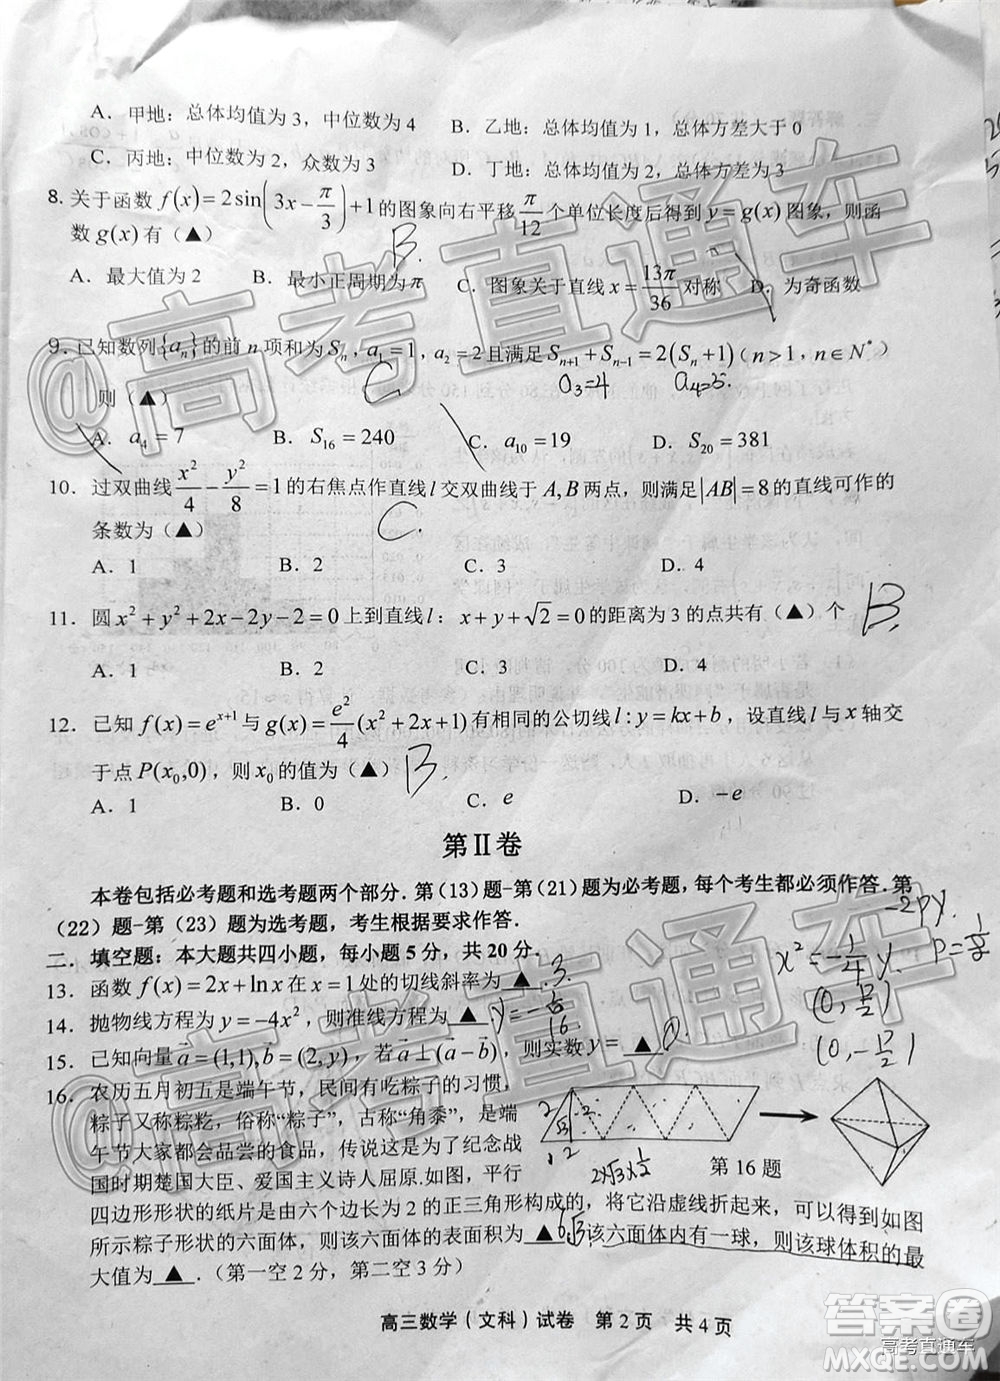 A．甲地：总体均值为 3，中位数为 4 B．乙地：总体均值为1，总体方差大于 0
C．丙地：中位数为 2，众数为 3 D．丁地：总体均值为2，总体方差为3
8. 关于函数 f(x)=2sin(3x-π/3)+1的图象向右平移 π/12 个单位长度后得到 y=g(x)图象，则函
数 g(x) 有（▲） B.
A．最大值为 2 B．最小正周期为π C．图象关于直线 x=13π/36 对称 D．为奇函数
9. 已知数列{aₙ}的前 n 项和为 Sₙ，a₁=1，a₂=2且满足 Sₙ₊₁+Sₙ₋₁=2(Sₙ+1)（n>1，n∈N*）
a₃=4 a₄=5.
则（▲） C.
A. a₄=7 B. S₁₆=240 C. a₁₀=19 D. S₂₀=381
10. 过双曲线 x²/4-y²/8=1的右焦点作直线 l 交双曲线于 A,B 两点，则满足|AB|=8的直线可作的
条数为（▲） C.
A．1 B．2 C．3 D．4
11. 圆 x²+y²+2x-2y-2=0上到直线 l：x+y+√2=0的距离为 3 的点共有（▲）个 B.
A．1 B．2 C．3 D．4
12. 已知 f(x)=eˣ⁺¹与 g(x)=e²/4(x²+2x+1)有相同的公切线 l:y=kx+b，设直线 l 与 x 轴交
于点 P(x₀,0)，则 x₀的值为（▲） B.
A．1 B．0 C．e D．-e
第Ⅱ卷
本卷包括必考题和选考题两个部分．第（13）题-第（21）题为必考题，每个考生都必须作答．第
（22）题-第（23）题为选考题，考生根据要求作答．
-2py.
二．填空题：本大题共四小题，每小题 5 分，共 20 分．
x²=-1/4 y. p=1/8
13. 函数 f(x)=2x+lnx 在 x=1处的切线斜率为 ▲ . 3.
14. 抛物线方程为 y=-4x²，则准线方程为 ▲
(0, p/2)
15. 已知向量 a=(1,1),b=(2,y)，若 a⊥(a-b)，则实数 y= ▲ . 0.
(0, -p/2)
16. 农历五月初五是端午节，民间有吃粽子的习惯，
粽子又称粽籺，俗称“粽子”，古称“角黍”，是端
午节大家都会品尝的食品，传说这是为了纪念战
国时期楚国大臣、爱国主义诗人屈原.如图，平行
第 16 题
四边形形状的纸片是由六个边长为 2 的正三角形构成的，将它沿虚线折起来，可以得到如图
所示粽子形状的六面体，则该六面体的表面积为 ▲ 6√3 该六面体内有一球，则该球体积的最
大值为 ▲ .（第一空 2 分，第二空 3 分）
高三数学（文科）试卷 第 2 页 共 4 页
@高考直通车
@高考直通车
答案圈
MXQE.COM
高考直通车